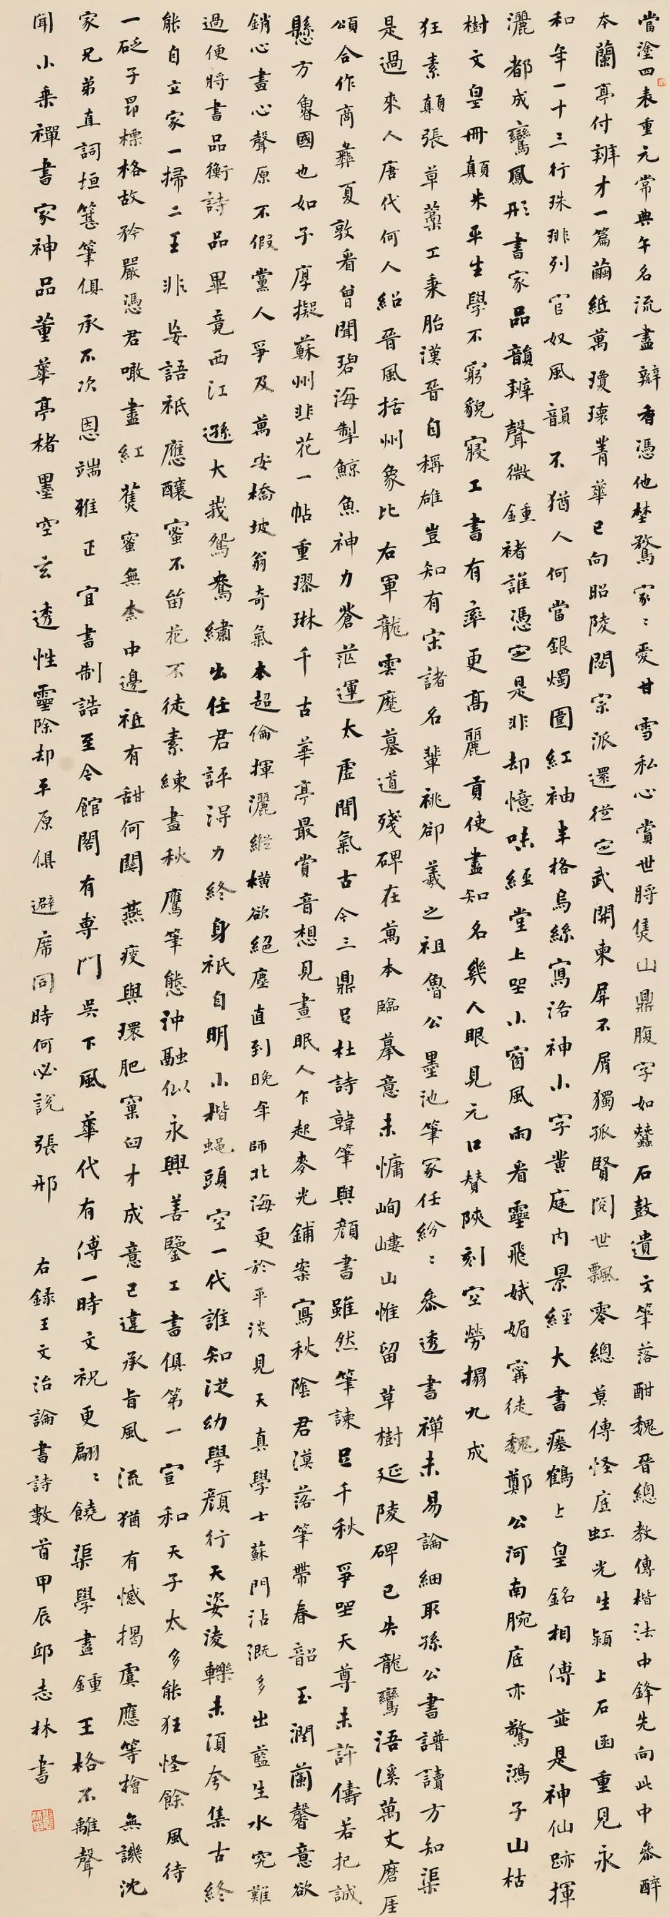 當塗四表重元常典午名流盡瓣香憑他埜鶩家〻愛甘雪私心賞世將焦山鼎腹字如蠶石鼓遺文筆落酣魏晉總教傳楷法中鋒先向此中參醉
本蘭亭付辨才一篇繭紙萬瓊瓌菁華已向昭陵閟宗派還從定武開東屏不屑獨孤賢閱世飄零總莫傳怪底虹光生潁上石函重見永
和年一十三行珠琲列官奴風韻不猶人何當銀燭圍紅袖半格烏絲寫洛神小字黃庭內景經大書瘞鶴上皇銘相傳並是神仙跡揮
灑都成鸞鳳形書家品韻辨聲微鍾褚誰憑定是非却憶味經堂上坐小窗風雨看靈飛娬媚甯徒魏鄭公河南腕底亦驚鴻子山枯
樹文皇冊顛米平生學不窮貌寢工書有率更高麗貢使盡知名幾人眼見元口贊陝刻空勞搨九成
狂素顛張草藁工秉胎漢晉自稱雄豈知有宋諸名輩祧卻羲之祖魯公墨池筆冢任紛〻參透書禪未易論細取孫公書譜讀方知渠
是過來人唐代何人紹晉風括州象比右軍龍雲麾墓道殘碑在萬本臨摹意未慵峋嶁山惟留草樹延陵碑已失龍鸞浯溪萬丈磨厓
頌合作商彝夏敦看曾聞碧海掣鯨魚神力蒼茫運太虛間氣古今三鼎足杜詩韓筆與顏書雖然筆諫足千秋爭坐天尊未許儔若把誠
懸方魯國也如子厚擬蘇州韭花一帖重璆琳千古華亭最賞音想見晝眠人乍起麥光鋪案寫秋陰君漠落筆帶春韶玉潤蘭馨意欲
銷心畫心聲原不假黨人爭及萬安橋坡翁奇氣本超倫揮灑縱橫欲絕塵直到晚年師北海更於平淡見天真學士蘇門沾溉多出藍生水究難
過便將書品衡詩品畢竟西江遜大峩鴛鴦繡出任君評得力終身祇自明小楷蠅頭空一代誰知從幼學顏行天姿淩轢未須夸集古終
能自立家一掃二王非妄語祇應釀蜜不留花不徒素練畫秋鷹筆態沖融似永興善鑒工書俱第一宣和天子太多能狂怪餘風待
一砭子昂標格故矜嚴憑君噉盡紅蕉蜜無柰中邊祗有甜何關燕瘦與環肥窠臼才成意已違承旨風流猶有憾揭虞應等檜無譏沈
家兄弟直詞垣簉筆俱承不次恩端雅正宜書制誥至今館閣有專門吳下風華代有傳一時文祝更翩〻饒渠學盡鍾王格不離聲
聞小乘禪書家神品董華亭楮墨空玄透性靈除却平原俱避席同時何必說張邢
右錄王文治論書詩數首甲辰邱志林書